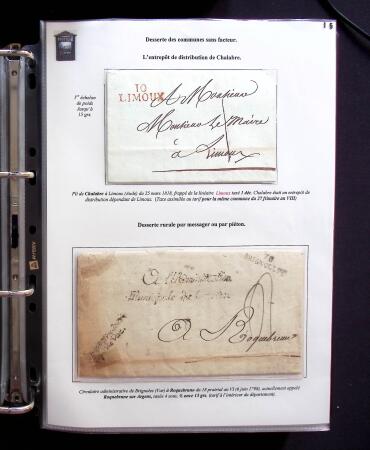 1 6
Desserte des communes sans facteur.
L'entrepôt de distribution de Chalabre.
1er échelon
de poids
Jusqu'à
15 grs.
10
LIMOUX
A Monsieur
Monsieur le Maire
à Limoux
Pli de Chalabre à Limoux (Aude) du 25 mars 1810, frappé de la linéaire Limoux taxé 1 déc. Chalabre était un entrepôt de
distribution dépendant de Limoux. (Taxe assimilée au tarif pour la même commune du 27 frimaire an VIII)
Desserte rurale par messager ou par piéton.
78
A
A Roquebrune
Circulaire administrative de Brignoles (Var) à Roquebrune du 18 prairial an VI (6 juin 1798), actuellement appelé
Roquebrune sur Argens, taxée 4 sous, ½ once 15 grs. (tarif à l'intérieur du département).
AVERY